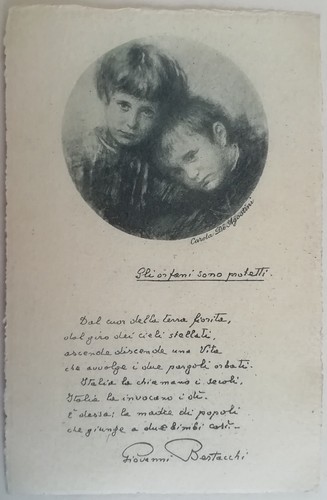 Carola De Agostini
Gli orfani sono protetti.
Dal cuor della terra fiorita,
dal giro dei cieli stellati,
ascende discende una Vita
che avvolge i due pargoli orbati.
Italia la chiamano i secoli,
Italia la invocano i dì.
È dessa: la madre di popoli
che giunge a due bimbi così.
Giovanni Bertacchi